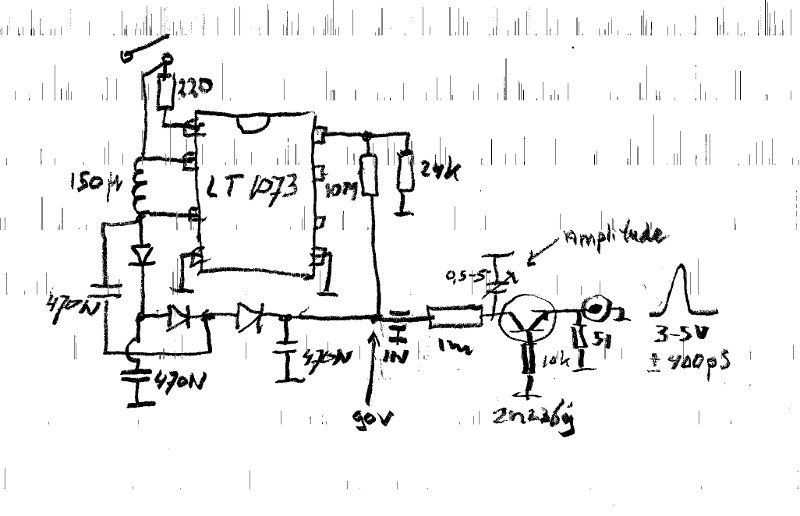 220
150µ
LT 1073
10M
24k
Amplitude
0,5-5
470N
470N
470N
1N
1M
10k
51
3-5V
± 400pS
90V
2N2369